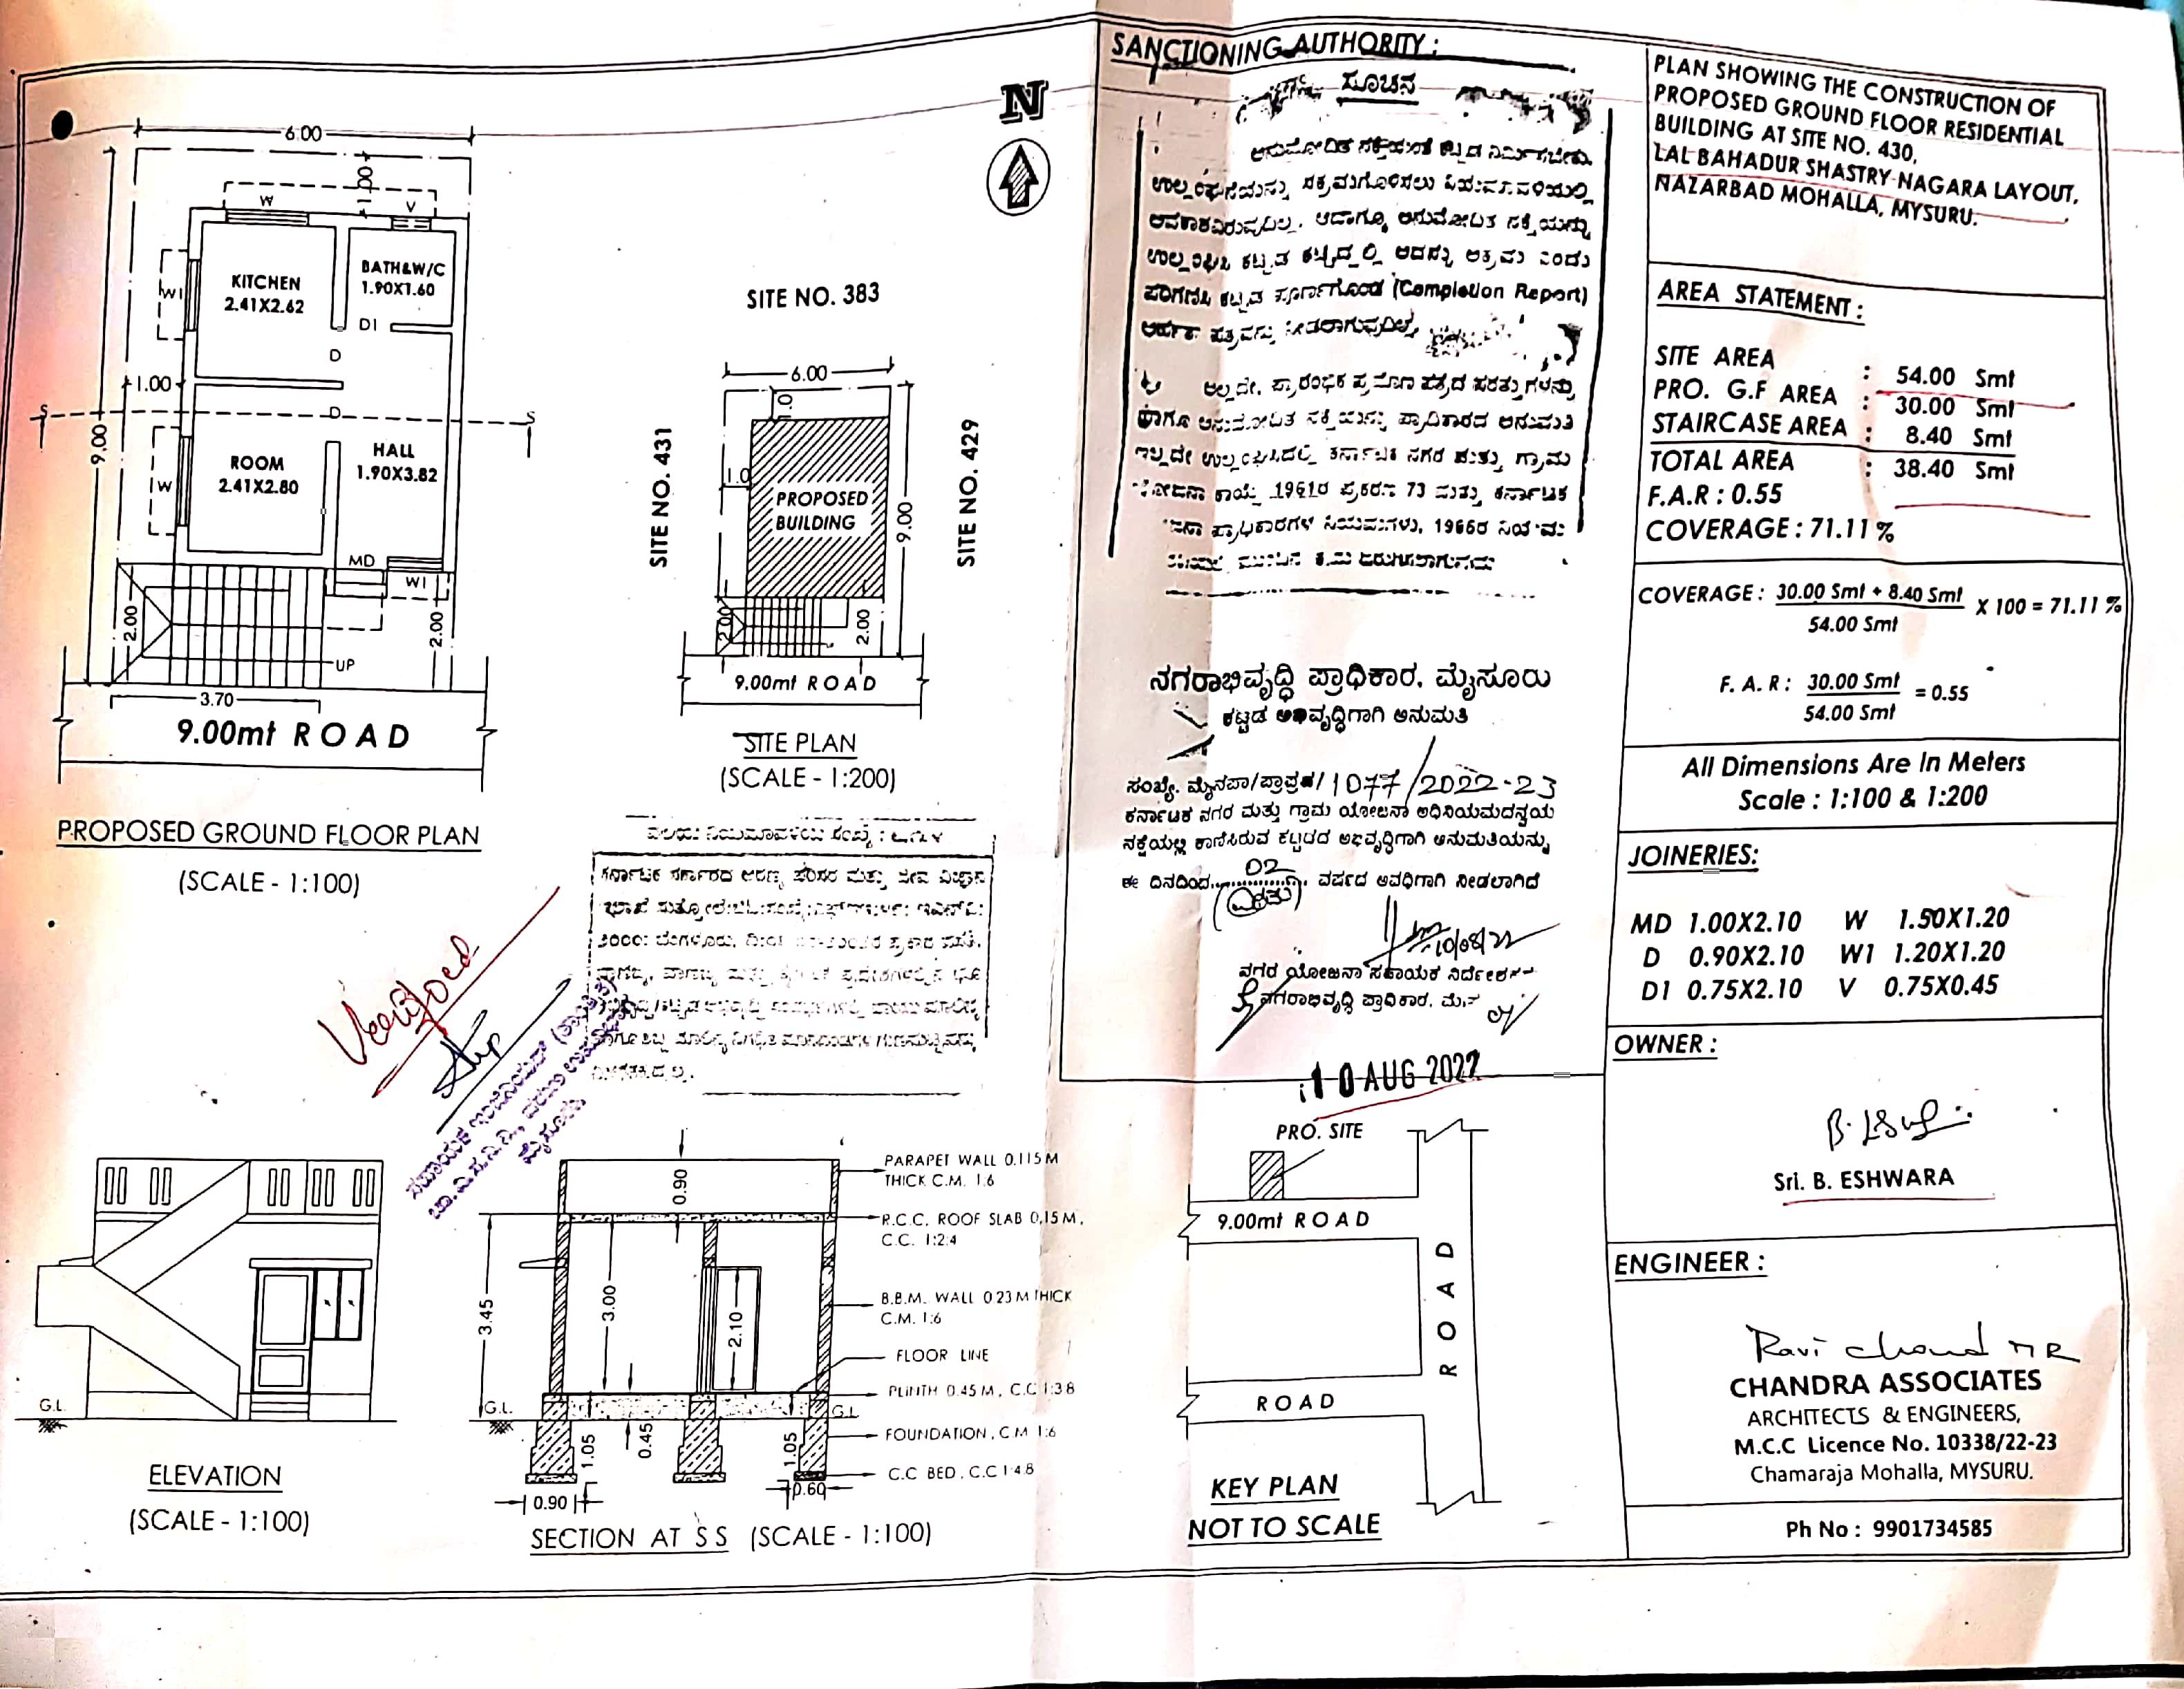 6.00
1.00
W
V
KITCHEN
2.41X2.62
BATH&W/C
1.90X1.60
W1
D1
D
1.00
S
D
S
9.00
ROOM
2.41X2.80
HALL
1.90X3.82
W
MD
W1
2.00
2.00
UP
3.70
9.00mt ROAD
PROPOSED GROUND FLOOR PLAN
(SCALE - 1:100)
N
SITE NO. 383
6.00
1.0
SITE NO. 431
1.0
PROPOSED
BUILDING
9.00
SITE NO. 429
2.00
2.00
9.00mt ROAD
SITE PLAN
(SCALE - 1:200)
ಕರ್ನಾಟಕ ಸರ್ಕಾರದ ಅರಣ್ಯ ಪರಿಸರ ಮತ್ತು ಜೀವ ವಿಜ್ಞಾನ
Verified
ELEVATION
(SCALE - 1:100)
G.L.
0.90
PARAPET WALL 0.115M
THICK C.M. 1:6
R.C.C. ROOF SLAB 0.15M,
C.C. 1:2:4
3.45
3.00
2.10
B.B.M. WALL 0.23M THICK
C.M. 1:6
FLOOR LINE
PLINTH 0.45M, C.C 1:3:8
G.L.
G.L
1.05
0.45
1.05
FOUNDATION, C.M 1:6
C.C BED, C.C 1:4:8
0.90
0.60
SECTION AT S S (SCALE - 1:100)
SANCTIONING AUTHORITY :
ಸೂಚನೆ
ಅನುಮೋದಿತ ನಕ್ಷೆಯಂತೆ ಕಟ್ಟಡ ನಿರ್ಮಿಸಬೇಕು.
ಉಲ್ಲಂಘನೆಯನ್ನು ಸಕ್ರಮಗೊಳಿಸಲು ನಿಯಮಾವಳಿಯಲ್ಲಿ
ಅವಕಾಶವಿರುವುದಿಲ್ಲ. ಆದಾಗ್ಯೂ ಅನುಮೋದಿತ ನಕ್ಷೆಯನ್ನು
ಉಲ್ಲಂಘಿಸಿ ಕಟ್ಟಡ ಕಟ್ಟಿದ್ದಲ್ಲಿ ಅದನ್ನು ಅಕ್ರಮ ಎಂದು
ಪರಿಗಣಿಸಿ ಕಟ್ಟಡ ಪೂರ್ಣಗೊಂಡ (Completion Report)
ಅರ್ಹತಾ ಪತ್ರವನ್ನು ನೀಡಲಾಗುವುದಿಲ್ಲ.
ಅಲ್ಲದೇ, ಪ್ರಾರಂಭಿಕ ಪ್ರಮಾಣ ಪತ್ರದ ಷರತ್ತುಗಳನ್ನು
ಹಾಗೂ ಅನುಮೋದಿತ ನಕ್ಷೆಯನ್ನು ಪ್ರಾಧಿಕಾರದ ಅನುಮತಿ
ಇಲ್ಲದೇ ಉಲ್ಲಂಘಿಸಿದಲ್ಲಿ ಕರ್ನಾಟಕ ನಗರ ಮತ್ತು ಗ್ರಾಮ
ಯೋಜನಾ ಕಾಯ್ದೆ 1961ರ ಪ್ರಕರಣ 73 ಮತ್ತು ಕರ್ನಾಟಕ
ಪ್ರಾಧಿಕಾರಗಳ ನಿಯಮಗಳು, 1966ರ ನಿಯಮ
ನಗರಾಭಿವೃದ್ಧಿ ಪ್ರಾಧಿಕಾರ, ಮೈಸೂರು
ಕಟ್ಟಡ ಅಭಿವೃದ್ಧಿಗಾಗಿ ಅನುಮತಿ
ಸಂಖ್ಯೆ. ಮೈನಪ್ರಾ/ಪ್ರಾಪ್ರಪ/1077/2022-23
ಕರ್ನಾಟಕ ನಗರ ಮತ್ತು ಗ್ರಾಮ ಯೋಜನಾ ಅಧಿನಿಯಮದನ್ವಯ
ನಕ್ಷೆಯಲ್ಲಿ ಕಾಣಿಸಿರುವ ಕಟ್ಟಡದ ಅಭಿವೃದ್ಧಿಗಾಗಿ ಅನುಮತಿಯನ್ನು
ಈ ದಿನದಿಂದ...02... ವರ್ಷದ ಅವಧಿಗಾಗಿ ನೀಡಲಾಗಿದೆ
(ಎರಡು)
10/08/22
ನಗರ ಯೋಜನಾ ಸಹಾಯಕ ನಿರ್ದೇಶಕರು
ನಗರಾಭಿವೃದ್ಧಿ ಪ್ರಾಧಿಕಾರ, ಮೈಸೂರು
10 AUG 2022
PRO. SITE
9.00mt ROAD
ROAD
ROAD
KEY PLAN
NOT TO SCALE
PLAN SHOWING THE CONSTRUCTION OF
PROPOSED GROUND FLOOR RESIDENTIAL
BUILDING AT SITE NO. 430,
LAL BAHADUR SHASTRY NAGARA LAYOUT,
NAZARBAD MOHALLA, MYSURU.
AREA STATEMENT :
SITE AREA : 54.00 Smt
PRO. G.F AREA : 30.00 Smt
STAIRCASE AREA : 8.40 Smt
TOTAL AREA : 38.40 Smt
F.A.R : 0.55
COVERAGE : 71.11 %
COVERAGE : 30.00 Smt + 8.40 Smt X 100 = 71.11 %
54.00 Smt
F. A. R : 30.00 Smt = 0.55
54.00 Smt
All Dimensions Are In Meters
Scale : 1:100 & 1:200
JOINERIES:
MD 1.00X2.10 W 1.50X1.20
D 0.90X2.10 W1 1.20X1.20
D1 0.75X2.10 V 0.75X0.45
OWNER :
Sri. B. ESHWARA
ENGINEER :
Ravi Chand M R
CHANDRA ASSOCIATES
ARCHITECTS & ENGINEERS,
M.C.C Licence No. 10338/22-23
Chamaraja Mohalla, MYSURU.
Ph No : 9901734585